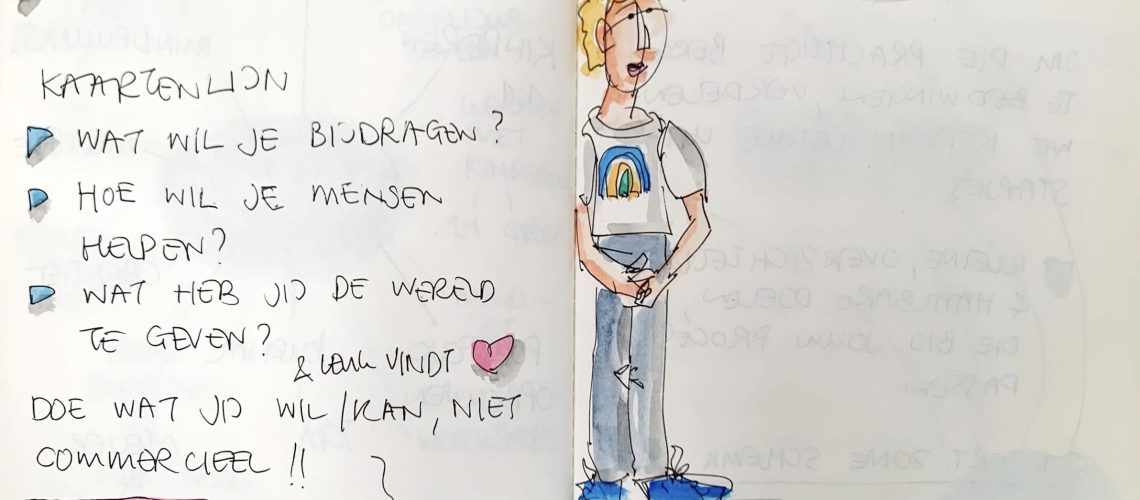 KAARTENLIJN
WAT WIL JE BIJDRAGEN?
HOE WIL JE MENSEN
HELPEN?
WAT HEB JIJ DE WERELD
TE GEVEN?
& leuk VINDT
DOE WAT JIJ WIL/KAN, NIET
COMMERCIEEL !!